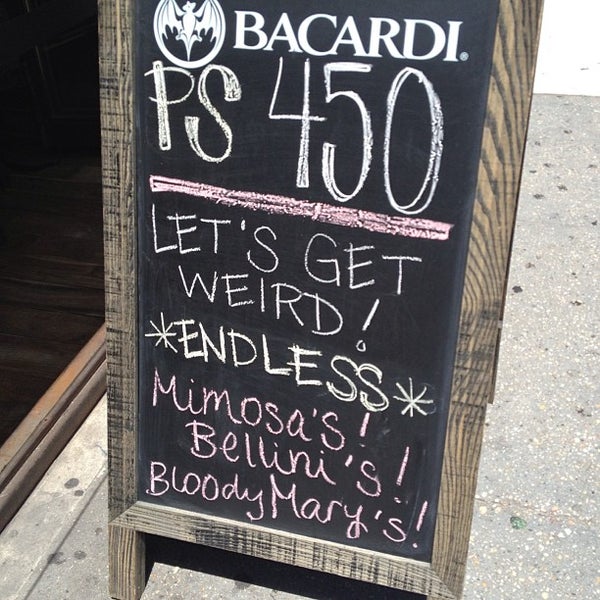 BACARDI.
PS 450
LET'S GET
WEIRD!
*ENDLESS*
Mimosa's!
Bellini's!
Bloody Mary's!